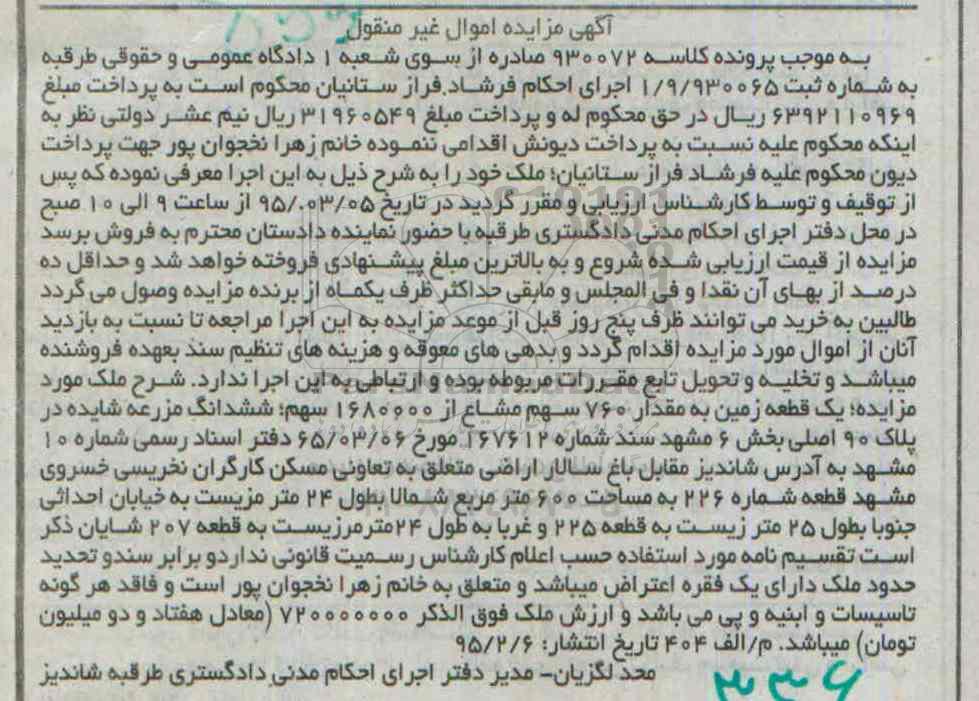 آگهی مزایده اموال غیر منقول
به موجب پرونده کلاسه ۹۳۰۰۷۲ صادره از سوی شعبه ۱ دادگاه عمومی و حقوقی طرقبه
به شماره ثبت ۱/۹/۹۳۰۰۶۵ اجرای احکام فرشاد.فراز ستانیان محکوم است به پرداخت مبلغ
۶۳۹۲۱۱۰۹۶۹ ریال در حق محکوم له و پرداخت مبلغ ۳۱۹۶۰۵۴۹ ریال نیم عشر دولتی نظر به
اینکه محکوم علیه نسبت به پرداخت دیونش اقدامی ننموده خانم زهرا نخجوان پور جهت پرداخت
دیون محکوم علیه فرشاد فراز ستانیان؛ ملک خود را به شرح ذیل به این اجرا معرفی نموده که پس
از توقیف و توسط کارشناس ارزیابی و مقرر گردید در تاریخ ۹۵/.۰۳/۰۵ از ساعت ۹ الی ۱۰ صبح
در محل دفتر اجرای احکام مدنی دادگستری طرقبه با حضور نماینده دادستان محترم به فروش برسد
مزایده از قیمت ارزیابی شده شروع و به بالاترین مبلغ پیشنهادی فروخته خواهد شد و حداقل ده
درصد از بهای آن نقدا و فی المجلس و مابقی حداکثر ظرف یکماه از برنده مزایده وصول می گردد
طالبین به خرید می توانند ظرف پنج روز قبل از موعد مزایده به این اجرا مراجعه تا نسبت به بازدید
آنان از اموال مورد مزایده اقدام گردد و بدهی های معوقه و هزینه های تنظیم سند بعهده فروشنده
میباشد و تخلیه و تحویل تابع مقررات مربوطه بوده و ارتباطی به این اجرا ندارد. شرح ملک مورد
مزایده؛ یک قطعه زمین به مقدار ۷۶۰ سهم مشاع از ۱۶۸۰۰۰۰ سهم؛ ششدانگ مزرعه شایده در
پلاک ۹۰ اصلی بخش ۶ مشهد سند شماره ۱۶۷۶۱۲ مورخ ۶۵/۰۳/۰۶ دفتر اسناد رسمی شماره ۱۰
مشهد به آدرس شاندیز مقابل باغ سالار اراضی متعلق به تعاونی مسکن کارگران نخریسی خسروی
مشهد قطعه شماره ۲۲۶ به مساحت ۶۰۰ متر مربع شمالا بطول ۲۴ متر مزیست به خیابان احداثی
جنوبا بطول ۲۵ متر زیست به قطعه ۲۲۵ و غربا به طول ۲۴مترمرزیست به قطعه ۲۰۷ شایان ذکر
است تقسیم نامه مورد استفاده حسب اعلام کارشناس رسمیت قانونی ندارد و برابر سندو تحدید
حدود ملک دارای یک فقره اعتراض میباشد و متعلق به خانم زهرا نخجوان پور است و فاقد هر گونه
تاسیسات و ابنیه و پی می باشد و ارزش ملک فوق الذکر ۷۲۰۰۰۰۰۰۰ (معادل هفتاد و دو میلیون
تومان) میباشد. م/الف ۴۰۴ تاریخ انتشار: ۹۵/۲/۶
محد لگزیان- مدیر دفتر اجرای احکام مدنی دادگستری طرقبه شاندیز
۳۳۶